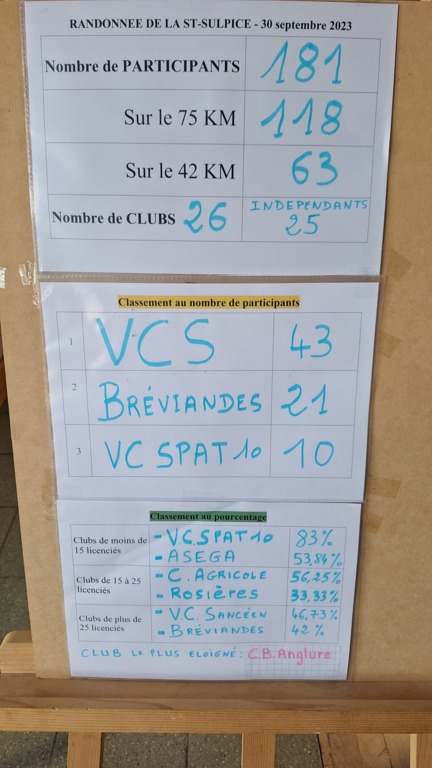 RANDONNEE DE LA ST-SULPICE - 30 septembre 2023
Nombre de PARTICIPANTS 181
Sur le 75 KM 118
Sur le 42 KM 63
Nombre de CLUBS 26 INDEPENDANTS 25
Classement au nombre de participants
1 VCS 43
2 BRÉVIANDES 21
3 VC SPAT 10 10
Classement au pourcentage
Clubs de moins de 15 licenciés
- V.C.SPAT 10 83%
- ASEGA 53,84%
Clubs de 15 à 25 licenciés
- C. AGRICOLE 56,25%
- Rosières 33,33%
Clubs de plus de 25 licenciés
- VC. SANCÉEN 46,73%
- BRÉVIANDES 42%
CLUB LE PLUS ELOIGNÉ: C.B.Anglure